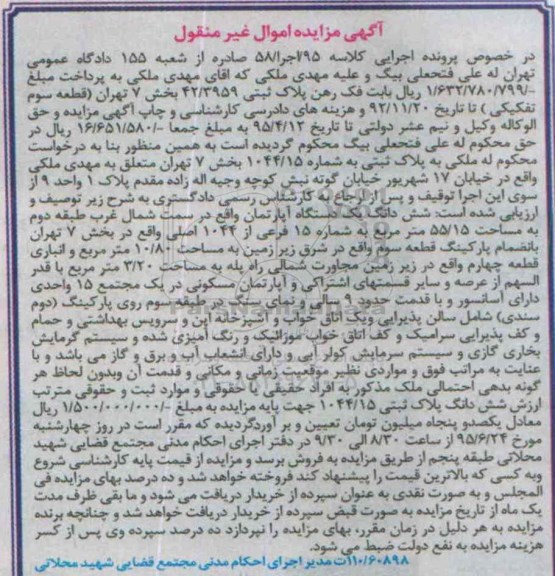 آگهی مزایده اموال غیر منقول
در خصوص پرونده اجرایی کلاسه ۹۵/اجرا/۵۸ صادره از شعبه ۱۵۵ دادگاه عمومی
تهران له علی فتحعلی بیگ و علیه مهدی ملکی که اقای مهدی ملکی به پرداخت مبلغ
۱/۶۳۲/۷۸۰/۷۹۹/- ریال بابت فک رهن پلاک ثبتی ۴۲/۳۹۵۹ بخش ۷ تهران (قطعه سوم
تفکیکی ) تا تاریخ ۹۲/۱۱/۲۰ و هزینه های دادرسی کارشناسی و چاپ آگهی مزایده و حق
الوکاله وکیل و نیم عشر دولتی تا تاریخ ۹۵/۴/۱۲ به مبلغ جمعا -/۱۶/۶۵۱/۵۸۰ ریال در
حق محکوم له علی فتحعلی بیگ محکوم گردیده است به همین منظور بنا به درخواست
محکوم له ملکی به پلاک ثبتی به شماره ۱۰۴۴/۱۵ بخش ۷ تهران متعلق به مهدی ملکی
واقع در خیابان ۱۷ شهریور خیابان گوته نبش کوچه وجیه اله زاده مقدم پلاک ۱ واحد ۹ از
سوی این اجرا توقیف و پس از ارجاع به کارشناس رسمی دادگستری به شرح زیر توصیف و
ارزیابی شده است: شش دانگ یک دستگاه آپارتمان واقع در سمت شمال غرب طبقه دوم
به مساحت ۵۵/۱۵ متر مربع به شماره ۱۵ فرعی از ۱۰۴۴ اصلی واقع در بخش ۷ تهران
بانضمام پارکینگ قطعه سوم واقع در شرق زیر زمین به مساحت ۱۰/۸۰ متر مربع و انباری
قطعه چهارم واقع در زیر زمین مجاورت شمالی راه پله به مساحت ۳/۲۰ متر مربع با قدر
السهم از عرصه و سایر قسمتهای اشتراکی و آپارتمان مسکونی در یک مجتمع ۱۵ واحدی
دارای آسانسور و با قدمت حدود ۹ سالی و نمای سنگ در طبقه سوم روی پارکینگ (دوم
سندی) شامل سالن پذیرایی ویک اتاق خواب و آشپزخانه اپن و سرویس بهداشتی و حمام
و کف پذیرایی سرامیک و کف اتاق خواب موزائیک و رنگ آمیزی شده و سیستم گرمایش
بخاری گازی و سیستم سرمایش کولر آبی و دارای انشعاب آب و برق و گاز می باشد و با
عنایت به مراتب فوق و مواردی نظیر موقعیت زمانی و مکانی و قدمت آن وبدون لحاظ هر
گونه بدهی احتمالی ملک مذکور به افراد حقیقی یا حقوقی و موارد ثبت و حقوقی مترتب
ارزش شش دانگ پلاک ثبتی ۱۰۴۴/۱۵ جهت پایه مزایده به مبلغ -/۱/۵۰۰/۰۰۰/۰۰۰ ریال
معادل یکصدو پنجاه میلیون تومان تعیین و بر آوردگردیده که مقرر است در روز چهارشنبه
مورخ ۹۵/۶/۲۴ از ساعت ۸/۳۰ الی ۹/۳۰ در دفتر اجرای احکام مدنی مجتمع قضایی شهید
محلاتی طبقه پنجم از طریق مزایده به فروش برسد و مزایده از قیمت پایه کارشناسی شروع
وبه کسی که بالاترین قیمت را پیشنهاد کند فروخته خواهد شد و ده درصد بهای مزایده فی
المجلس و به صورت نقدی به عنوان سپرده از خریدار دریافت می شود و ما بقی ظرف مدت
یک ماه از تاریخ مزایده به صورت قبض سپرده از خریدار دریافت خواهد شد و چنانچه برنده
مزایده به هر دلیل در زمان مقرر، بهای مزایده را نپردازد ده درصد سپرده وی پس از کسر
هزینه مزایده به نفع دولت ضبط می شود.
۱۱۰/۶۰۸۹۸ت مدیر اجرای احکام مدنی مجتمع قضایی شهید محلاتی